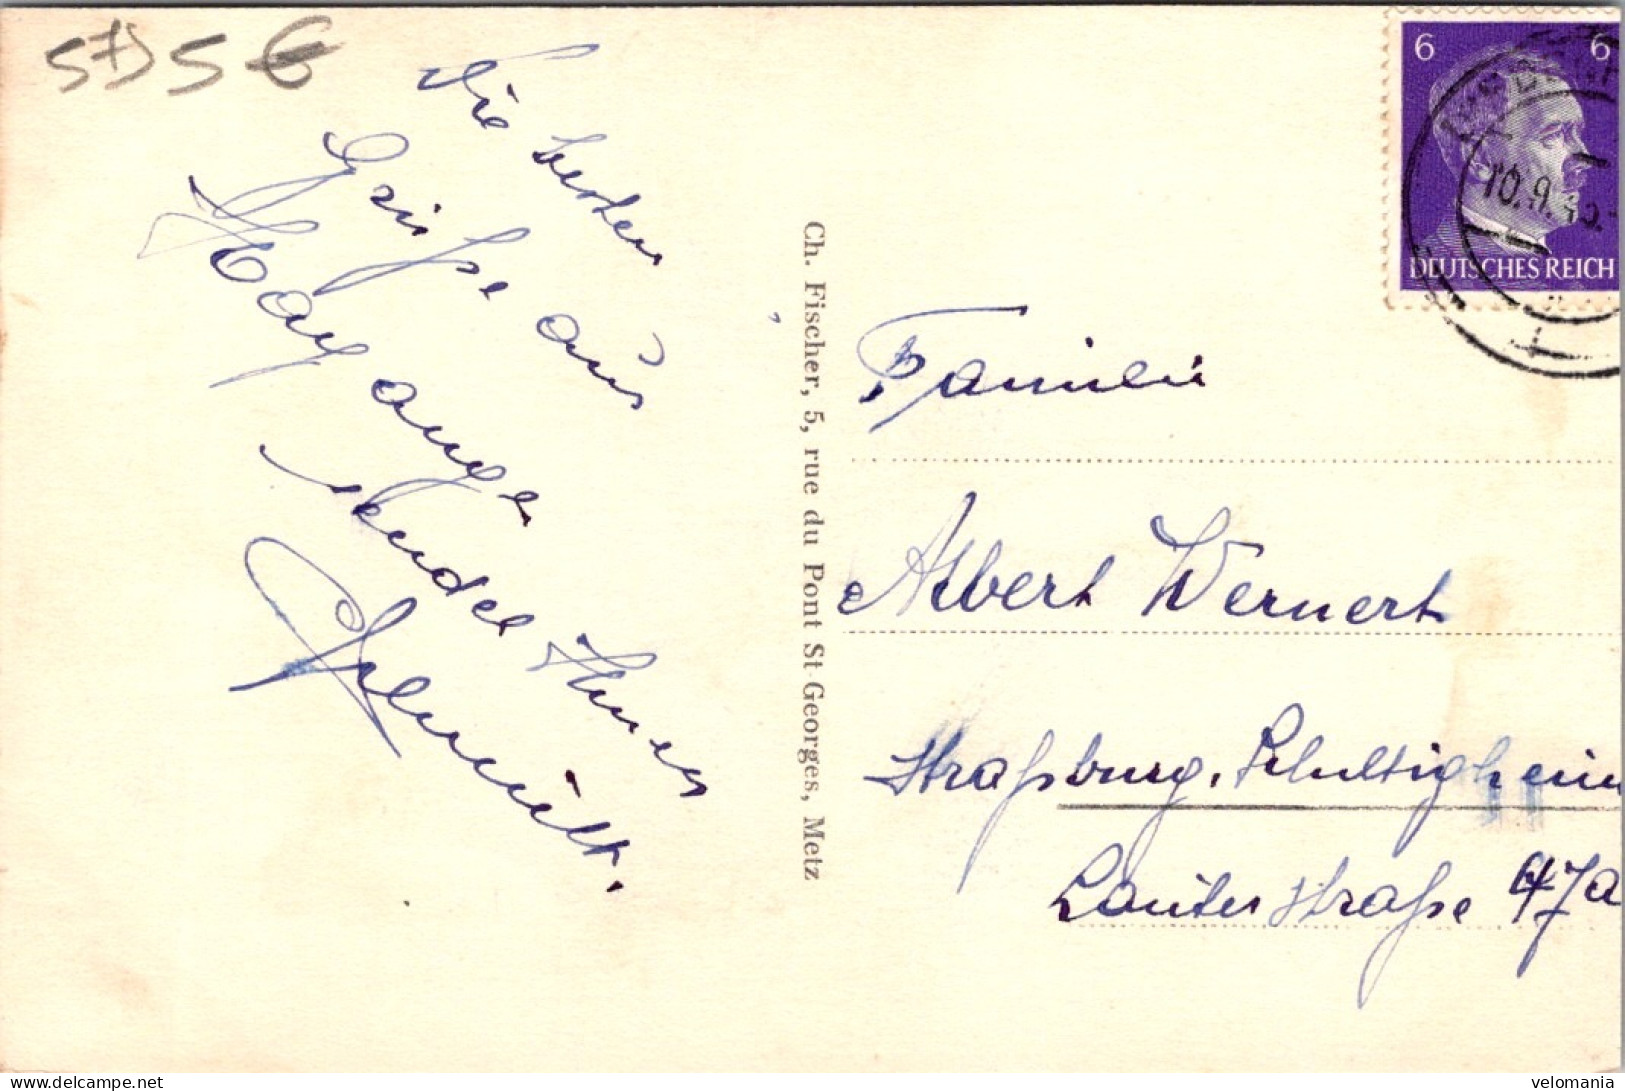 575 6
Die besten
Grüße aus
Hayange
sendet Ihnen
Ch. Fischer, 5, rue du Pont St-Georges, Metz
6 6
10.9.43
DEUTSCHES REICH
Familie
Albert Wernert
Straßburg, Schiltigheim
Lauterstraße 47a
www.delcampe.net
velomania